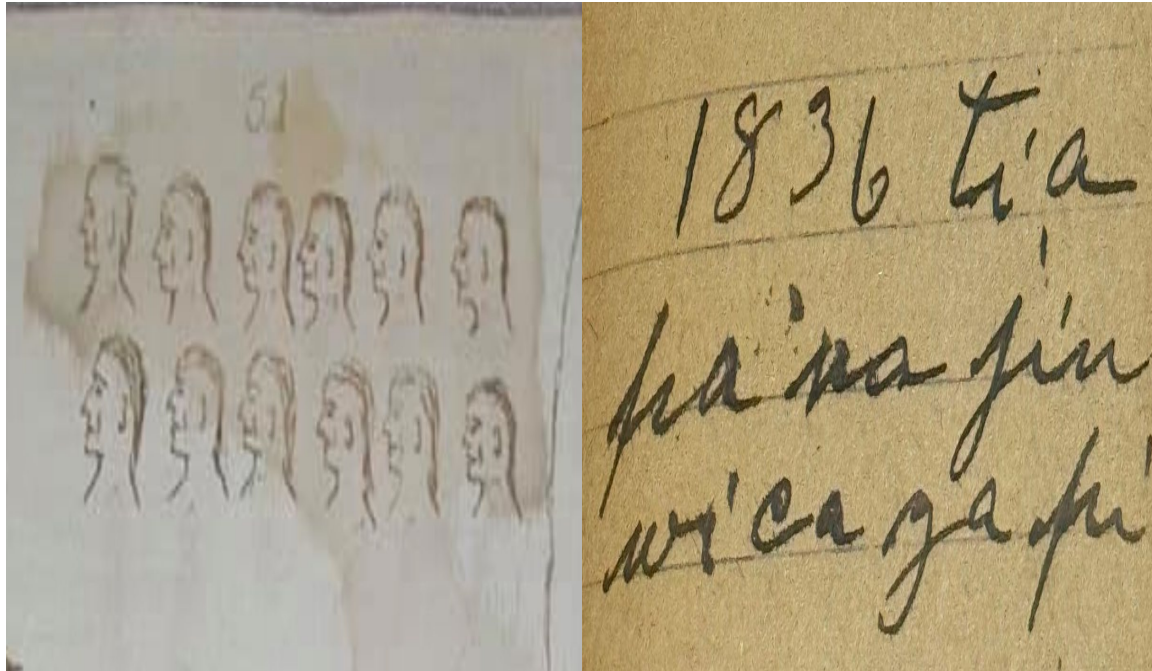 51
1836 tia
pa na jin
wica ya pi